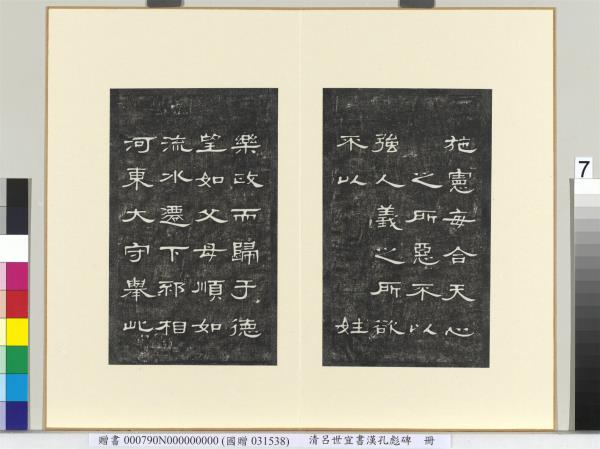 施憲每合天心
之所惡不以
強人義之所欲
不以 姓
樂政而歸于德
望如父母順如
流水遷下邳相
河東大守舉此
7
贈書 000790N000000000 (國贈 031538) 清呂世宜書漢孔彪碑 冊